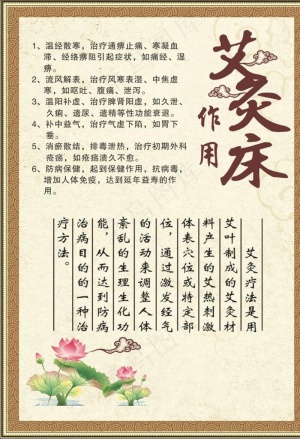 艾灸床
作用
1、温经散寒，治疗通痹止痛、寒凝血
滞、经络痹阻引起症状，如痛经、湿
痹。
2、流风解表，治疗风寒表湿、中焦虚
寒，如呕吐、腹痛、泄泻。
3、温阳补虚、治疗脾肾阳虚，如久泄、
久痢、遗尿、遗精等性功能衰退。
4、补中益气，治疗气虚下陷，如胃下
垂。
5、消瘀散结，排毒泄热，治疗初期外科
疮疡，如疮疡溃久不愈。
6、防病保健，起到保健作用，抗病毒，
增加人体免疫，达到延年益寿的作
用。
艾灸疗法是用
艾叶制成的艾灸材
料产生的艾热刺激
体表穴位或特定部
位，通过激发经气
的活动来调整人体
紊乱的生理生化功
能，从而达到防病
治病目的的一种治
疗方法。